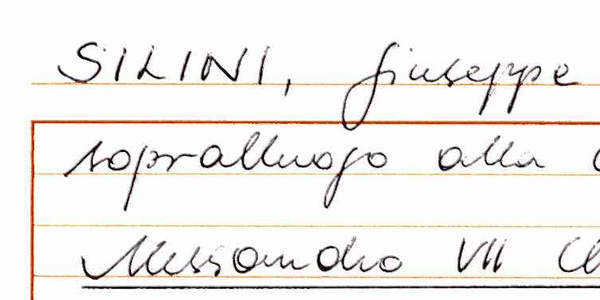 SILINI, Giuseppe
sopralluogo alla
Alessandro VII